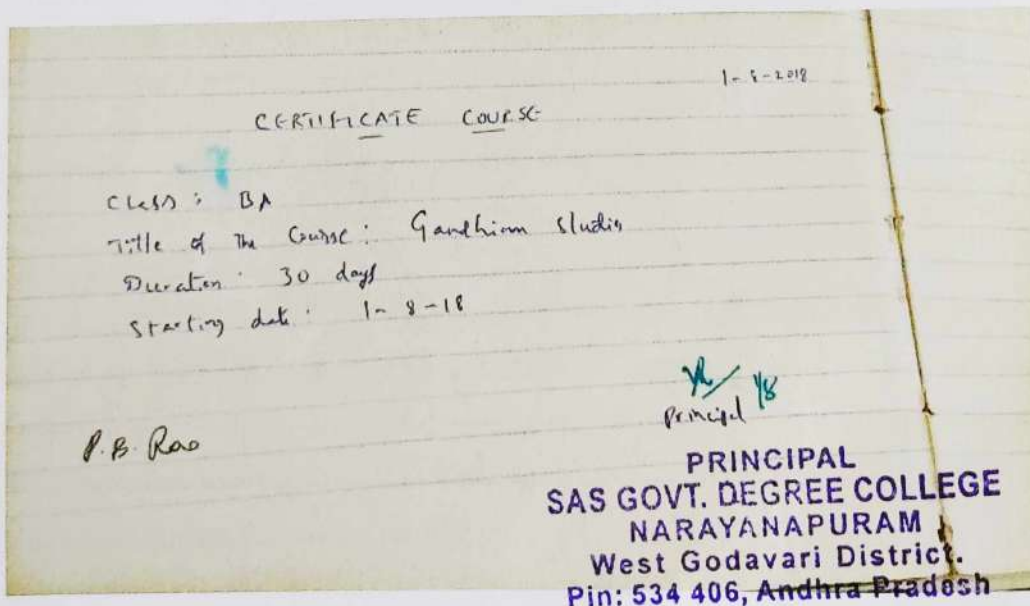 1-8-2018
CERTIFICATE COURSE
Class : BA
Title of The Course : Gandhian Studies
Duration : 30 days
Starting date : 1-8-18
1/8
Principal
P.B. Rao
PRINCIPAL
SAS GOVT. DEGREE COLLEGE
NARAYANAPURAM
West Godavari District.
Pin: 534 406, Andhra Pradesh